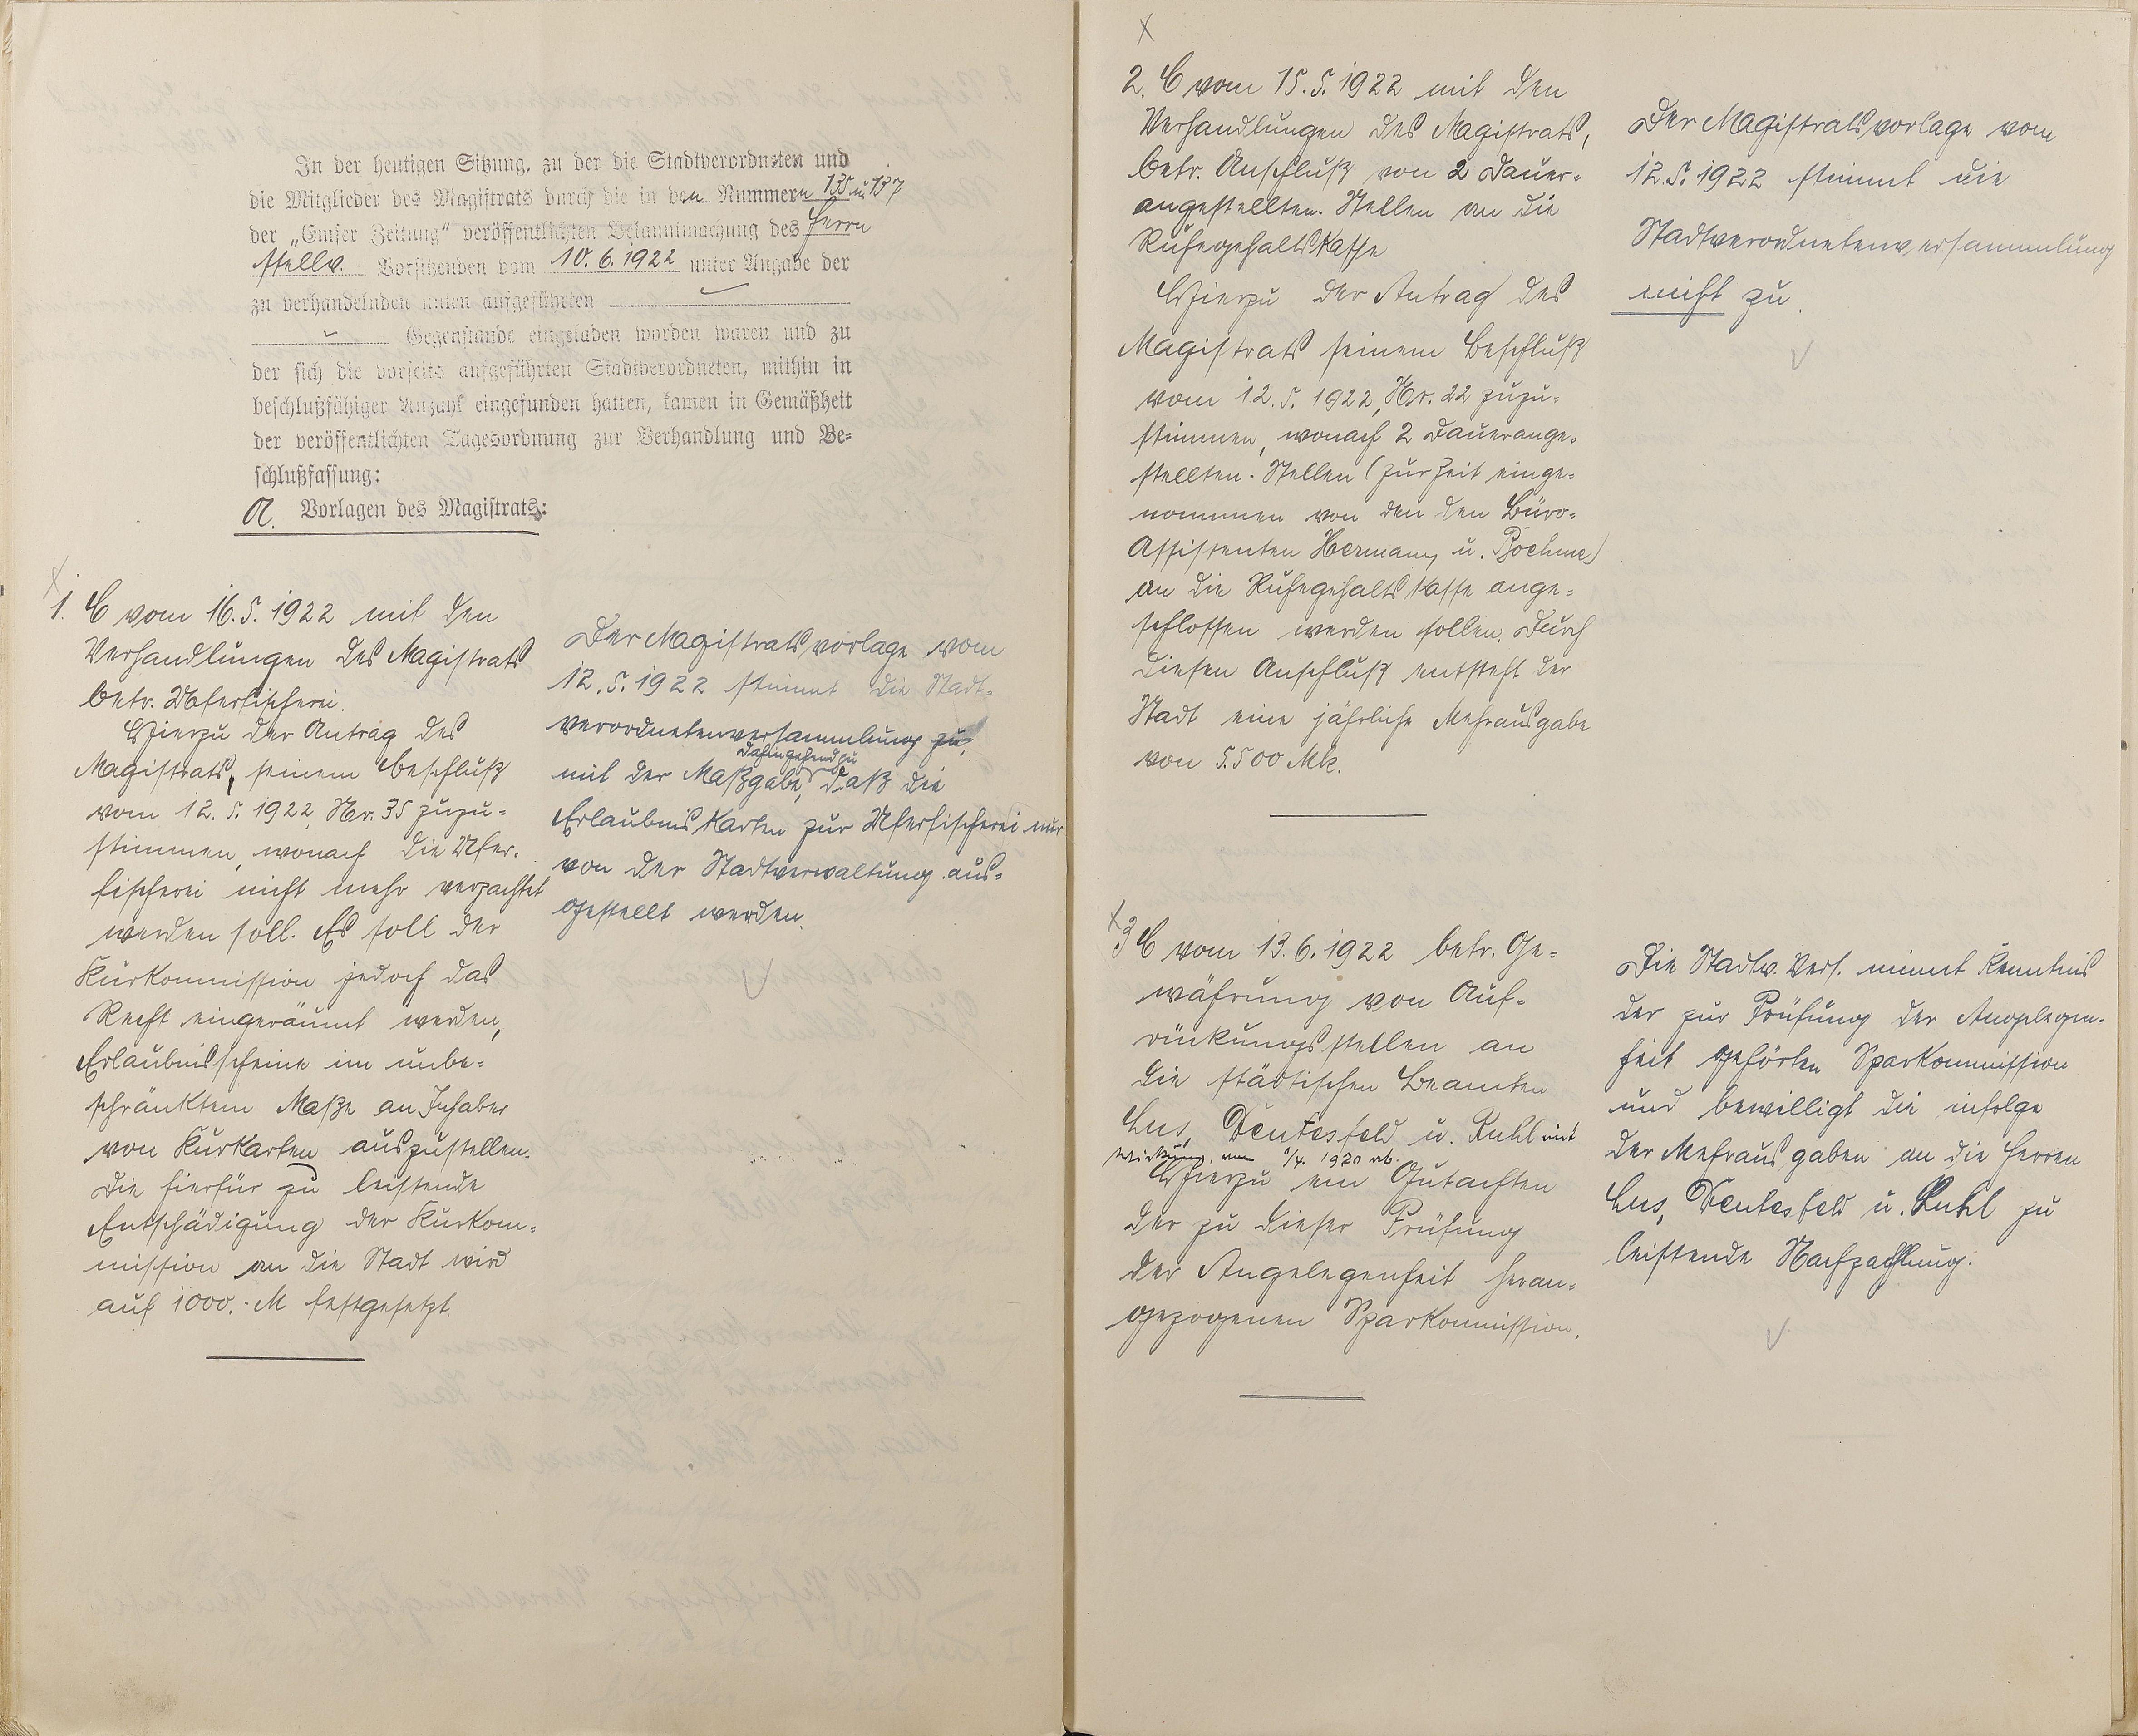 In der heutigen Sitzung, zu der die Stadtverordneten und
die Mitglieder des Magistrats durch die in den Nummern 135 u. 137
der „Emser Zeitung“ veröffentlichten Bekanntmachung des Herrn
stellv. Vorsitzenden vom 10. 6. 1922 unter Angabe der
zu verhandelnden unten aufgeführten
Gegenstände eingeladen worden waren und zu
der sich die vorseits aufgeführten Stadtverordneten, mithin in
beschlußfähiger Anzahl eingefunden hatten, kamen in Gemäßheit
der veröffentlichten Tagesordnung zur Verhandlung und Be-
schlußfassung:
A. Vorlagen des Magistrats:
1. C vom 16.5.1922 mit den
Verhandlungen des Magistrats
betr. Uferfischerei.
Hierzu der Antrag des
Magistrats, seinem Beschluß
vom 12.5.1922, Nr. 35 zuzu-
stimmen, wonach die Ufer-
fischerei nicht mehr verpachtet
werden soll. Es soll der
Kurkommission jedoch das
Recht eingeräumt werden,
Erlaubnisscheine im unbe-
schränktem Maße an Inhaber
von Kurkarten auszustellen.
Die hierfür zu leistende
Entschädigung der Kurkom-
mission an die Stadt wird
auf 1000.- M festgesetzt.
Der Magistratsvorlage vom
12.5.1922 stimmt die Stadt-
verordnetenversammlung zu,
dahingehend zu
mit der Maßgabe, daß die
Erlaubniskarten zur Uferfischerei nur
von der Stadtverwaltung aus-
gestellt werden.
2. C vom 15.5.1922 mit den
Verhandlungen des Magistrats,
betr. Anschluß von 2 Dauer-
angestellten-Stellen an die
Ruhegehaltskasse
Hierzu der Antrag des
Magistrats seinem Beschluß
vom 12.5.1922, Nr. 22 zuzu-
stimmen, wonach 2 Dauerange-
stellten-Stellen (zur Zeit einge-
nommen von den den Büro-
Assistenten Hermann u. Boehme)
an die Ruhegehaltskasse ange-
schlossen werden sollen. Durch
diesen Anschluß entsteht der
Stadt eine jährliche Mehrausgabe
von 5.500 Mk.
Der Magistratsvorlage vom
12.5.1922 stimmt die
Stadtverordnetenversammlung
nicht zu.
3 C vom 13.6.1922 betr. Ge-
währung von Auf-
rückungsstellen an
die städtischen Beamten
Lus, Deutesfeld u. Ruhl mit
Wirkung vom 1/4. 1920 ab.
Hierzu ein Gutachten
der zu dieser Prüfung
der Angelegenheit heran-
gezogenen Sparkommission.
Die Stadtv. Vers. nimmt Kenntnis
der zur Prüfung der Angelegen-
heit gehörten Sparkommission
und bewilligt die infolge
der Mehrausgaben an die Herren
Lus, Deutesfeld u. Ruhl zu
leistende Nachzahlung.